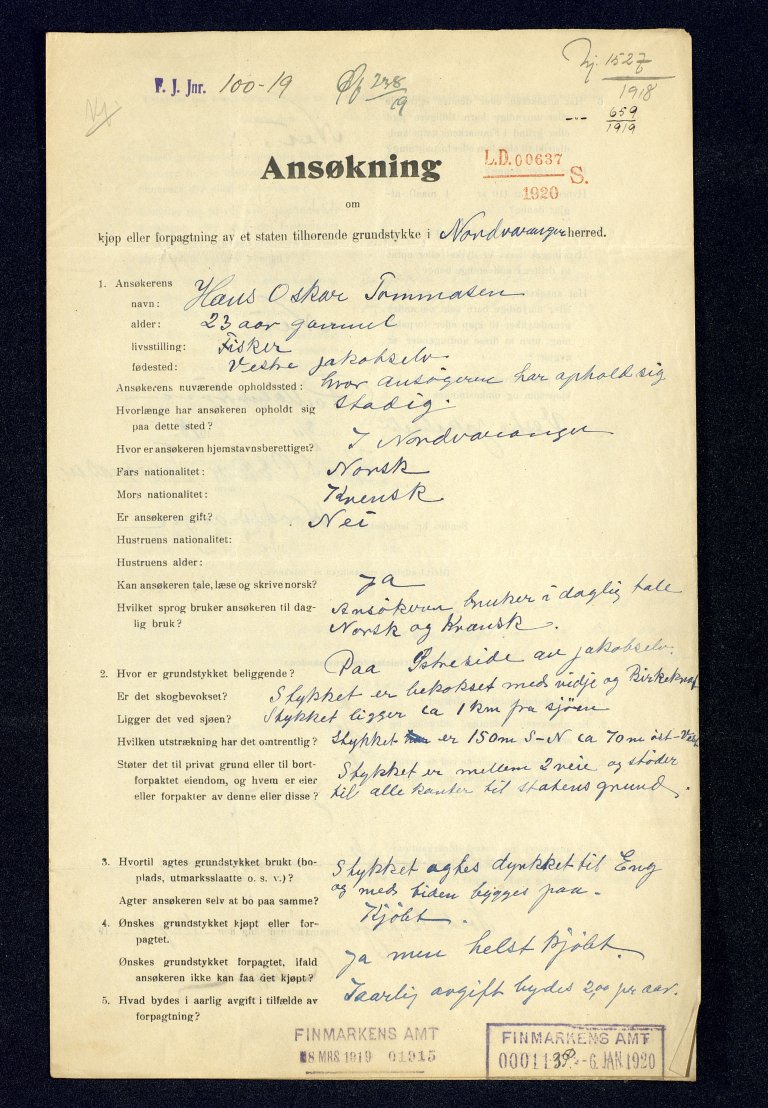 F. J. Jnr. 100-19
Nj. 1527
1918
--- 659
1919
238
19
Ansøkning
L.D. 00637 S.
1920
om
kjøp eller forpagtning av et staten tilhørende grundstykke i Nordvaranger herred.
1. Ansøkerens
navn: Hans Oskar Tommasen
alder: 23 aar gammel
livsstilling: Fisker
fødested: Vestre jakobselv.
Ansøkerens nuværende opholdssted: hvor Ansøgeren har ophold sig
Hvorlænge har ansøkeren opholdt sig stadig.
paa dette sted?
Hvor er ansøkeren hjemstavnsberettiget? I Nordvaranger
Fars nationalitet: Norsk
Mors nationalitet: Kvensk
Er ansøkeren gift? Nei
Hustruens nationalitet:
Hustruens alder:
Kan ansøkeren tale, læse og skrive norsk? ja
Hvilket sprog bruker ansøkeren til dag- Ansökeren bruker i daglig tale
lig bruk? Norsk og Kvænsk.
2. Hvor er grundstykket beliggende? Paa Östreside av jakobselv.
Er det skogbevokset? Stykket er bekokset med vidje og Birkekrat
Ligger det ved sjøen? Stykket ligger ca 1 km fra sjöen
Hvilken utstrækning har det omtrentlig? Stykket er 150 m S-N ca 70 m öst-Vest
Støter det til privat grund eller til bort-
forpaktet eiendom, og hvem er eier Stykket er mellem 2 veie og støder
eller forpakter av denne eller disse? til alle kanter til statens grund.
3. Hvortil agtes grundstykket brukt (bo- Stykket agtes dyrkket til Eng
plads, utmarksslaatte o. s. v.)? og med tiden bygges paa.
Agter ansøkeren selv at bo paa samme?
4. Ønskes grundstykket kjøpt eller for- Kjöbt.
pagtet.
Ønskes grundstykket forpagtet, ifald ja men helst kjöbt.
ansøkeren ikke kan faa det kjøpt?
5. Hvad bydes i aarlig avgift i tilfælde av Iaarlig avgift bydes 2,00 pr aar.
forpagtning?
FINMARKENS AMT
8 MRS 1919 01915
FINMARKENS AMT
-6 JAN 1920